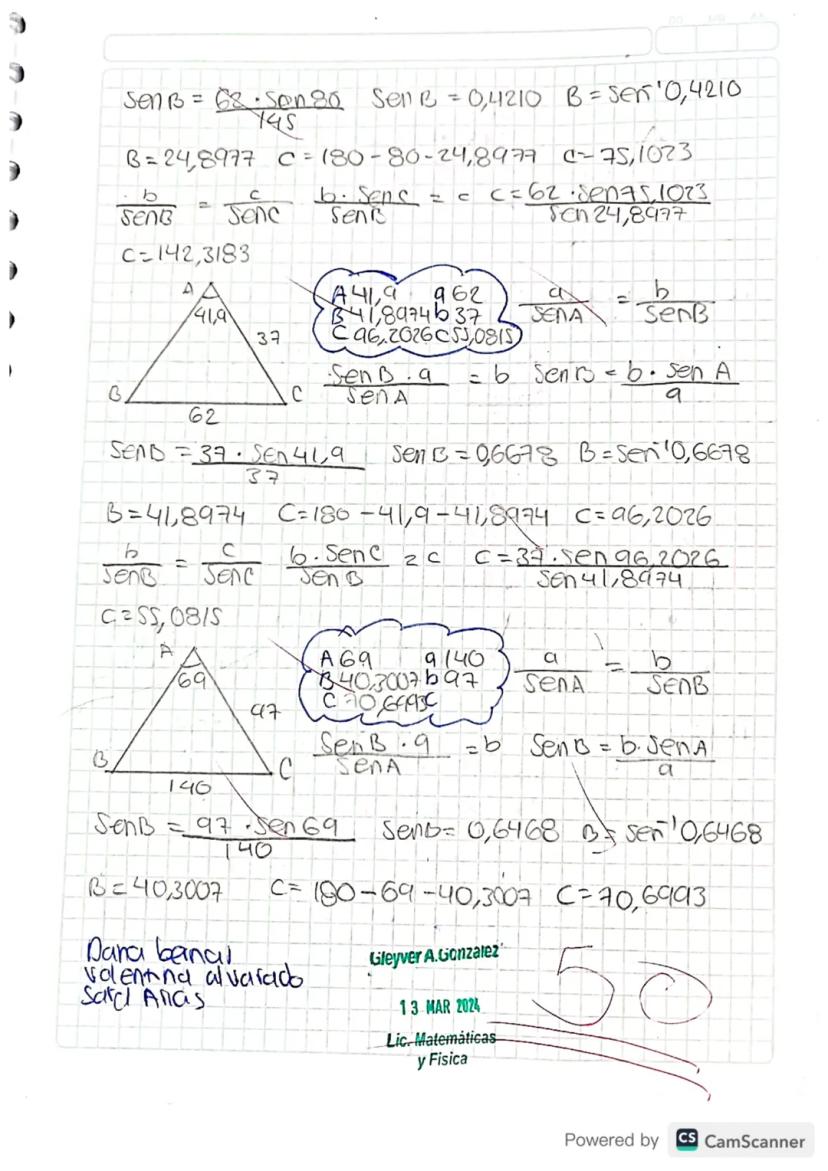 SenB = 62 . Sen80 / 145 Sen B = 0,4210 B = sen⁻¹0,4210
B = 24,8977 C = 180 - 80 - 24,8977 C = 75,1023
b / SenB = c / SenC b . Senc / SenB = c C = 62 . Sen75,1023 / Sen 24,8977
C = 142,3183
A
41,9
37
B
C
62
A 41,9 a 62
B 41,8974 b 37
C 96,2026 C 55,0815
a / SenA = b / SenB
SenB . a / SenA = b Sen B = b . sen A / a
SenB = 37 . Sen 41,9 / 37 Sen B = 0,6678 B = Sen⁻¹0,6678
B = 41,8974 C = 180 - 41,9 - 41,8974 C = 96,2026
b / SenB = c / SenC b . SenC / Sen B = C C = 37 . sen 96,2026 / Sen 41,8974
C = 55,0815
A
69
97
B
C
140
A 69 a 140
B 40,3007 b 97
C 70,6993 C
a / SenA = b / SenB
SenB . a / SenA = b Sen B = b . SenA / a
SenB = 97 . Sen 69 / 140 SenB = 0,6468 B = sen⁻¹0,6468
B = 40,3007 C = 180 - 69 - 40,3007 C = 70,6993
Dana bernal
valentina alvarado
Sara Arias
Gleyver A.Gonzalez
13 MAR 2024
Lic. Matemáticas
y Fisica
50
Powered by CS CamScanner